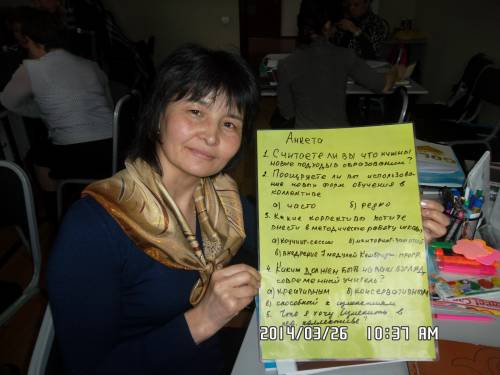 Анкета
1. Считаете ли вы что нужны
новые подходы в образовании?
2. Поощряете ли вы использова
ние новых форм обучения в
коллективе
а) часто б) редко
3. Какие коррективы хотите
внести в методическую работу школы
а) коучинг-сессии б) менторинг
в) внедрение 7 модулей Кембридж. прогр.
4. Каким должен быть на ваш взгляд
современный учитель?
а) креативным б) консервативным
в) способный к изменениям
5. Что я хочу изменить в
коллективе?
2014/03/26 10:37 AM